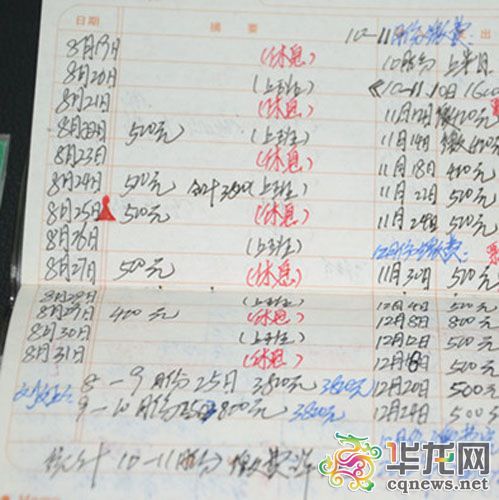 日期
摘要
8月19日 (休息)
8月20日 (上班)
8月21日 (休息)
8月22日 500元 (上班)
8月23日 (休息)
8月24日 500元 合计3800 (上班)
8月25日 500元 (休息)
8月26日 (上班)
8月27日 500元 (休息)
8月28日 (上班)
8月29日 400元 (休息)
8月30日 (上班)
8月31日 (休息)
8—9月份25日 3800元 3800元
9—10月份25日 3800元
统计 10—11月份缴费
10—11月份缴费
出
10月份 上半月
11月14日
11月18日 400元
11月22日 500元
11月24日 500元
12月份缴费:
11月30日 500元
12月4日 500元
12月8日 800元
12月12日 500元
12月18日 500元
12月20日 500元
12月24日 500
华龙网
cqnews.net